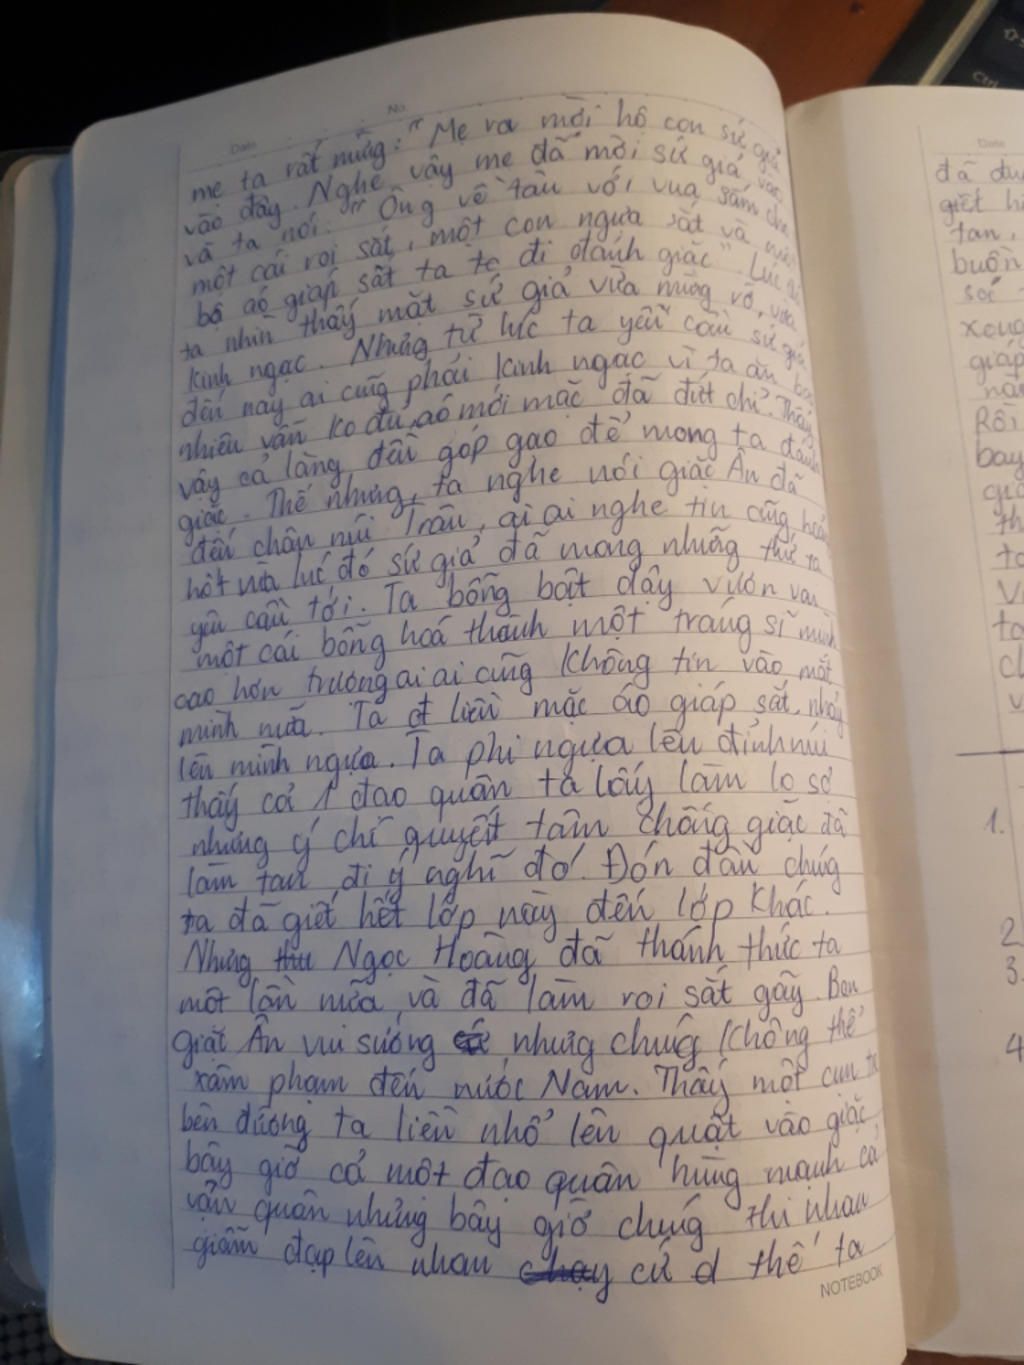 Date No.
mẹ ta rất mừng: "Mẹ ra mời hộ con sứ giả
vào đây. Nghe vậy mẹ đã mời sứ giả vào
và ta nói: "Ông về tâu với vua sắm cho
một cái roi sắt, một con ngựa sắt và một
bộ áo giáp sắt ta tc đi đánh giặc". Lúc
ta nhìn thấy mặt sứ giả vừa mừng rỡ, vừa
kinh ngạc. Nhưng từ lúc ta yêu cầu sứ giả
đến nay ai cũng phải kinh ngạc vì ta ăn bao
nhiêu vẫn ko đủ, áo mới mặc đã đứt chỉ. Thấy
vậy cả làng đều góp gạo để mong ta đánh
giặc. Thế nhưng, ta nghe nói giặc Ân đã
đến chân núi Trâu, ai ai nghe tin cũng hoảng
hốt vừa lúc đó sứ giả đã mang những thứ ta
yêu cầu tới. Ta bỗng bật dậy vươn vai
một cái bỗng hoá thành một tráng sĩ mình
cao hơn trượng ai ai cũng không tin vào mắt
mình nữa. Ta liền mặc áo giáp sắt, nhảy
lên mình ngựa. Ta phi ngựa lên đỉnh núi
thấy cả 1 đạo quân ta lấy làm lo sợ
nhưng ý chí quyết tâm chống giặc đã
làm tan đi ý nghĩ đó. Đón đầu chúng
ta đã giết hết lớp này đến lớp khác.
Nhưng Ngọc Hoàng đã thánh thức ta
một lần nữa, và đã làm roi sắt gãy. Bọn
giặt Ân vui sướng, nhưng chúng không thể
xâm phạm đến nước Nam. Thấy một cụm tre
bên đường ta liền nhổ lên quật vào giặc
bây giờ cả một đạo quân hùng mạnh cả
vạn quân nhưng bây giờ chúng thi nhau
giẫm đạp lên nhau cứ d thế ta
NOTEBOOK
Date
đã
giết
tan,
buồn
giáp
Rồi
bay
1.
2
3.
4